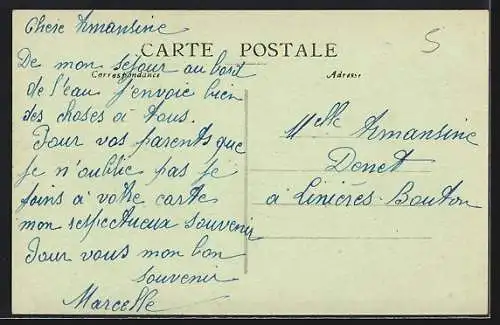 Chère Armansine
CARTE POSTALE
Correspondance
Adresse
5
De mon séjour au bord
de l'eau j'envoie bien
des choses à tous.
Pour vos parents que
je n'oublie pas je
joins à votre carte
mon respectueux souvenir
Pour vous mon bon
souvenir
Marcelle
Melle Armansine
Denet
à Linières-Bouton